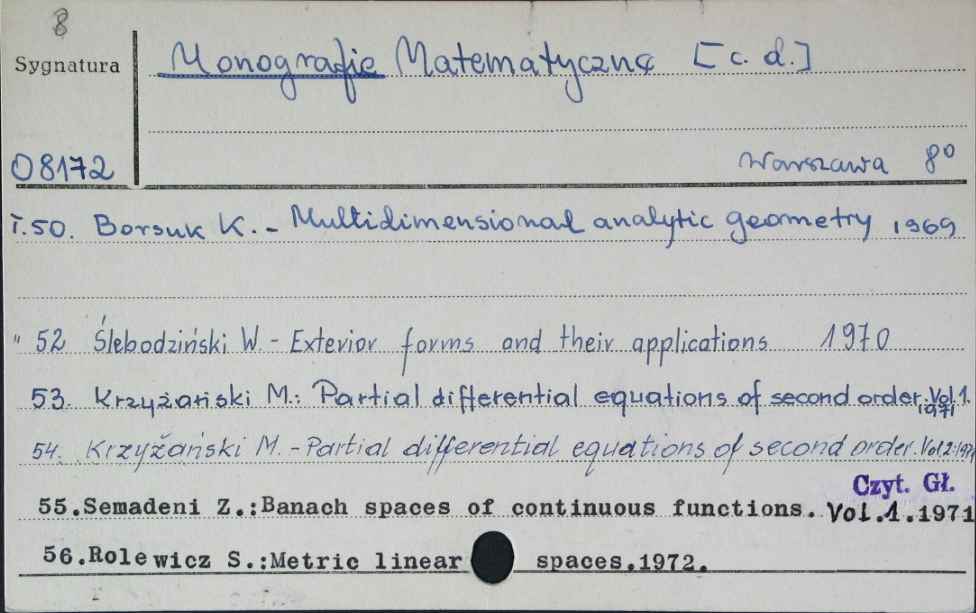 8
Sygnatura
Monografie Matematyczne [c. d.]
08172
Warszawa 8°
T.50. Borsuk K. - Multidimensional analytic geometry 1969
" 52 Ślebodziński W. - Exterior forms and their applications 1970
53. Krzyżański M.: Partial differential equations of second order. Vol. 1. 1971
54. Krzyżański M. - Partial differential equations of second order. Vol. 2.
Czyt. Gł.
55. Semadeni Z.: Banach spaces of continuous functions. Vol. 1. 1971
56. Rolewicz S.: Metric linear spaces. 1972.